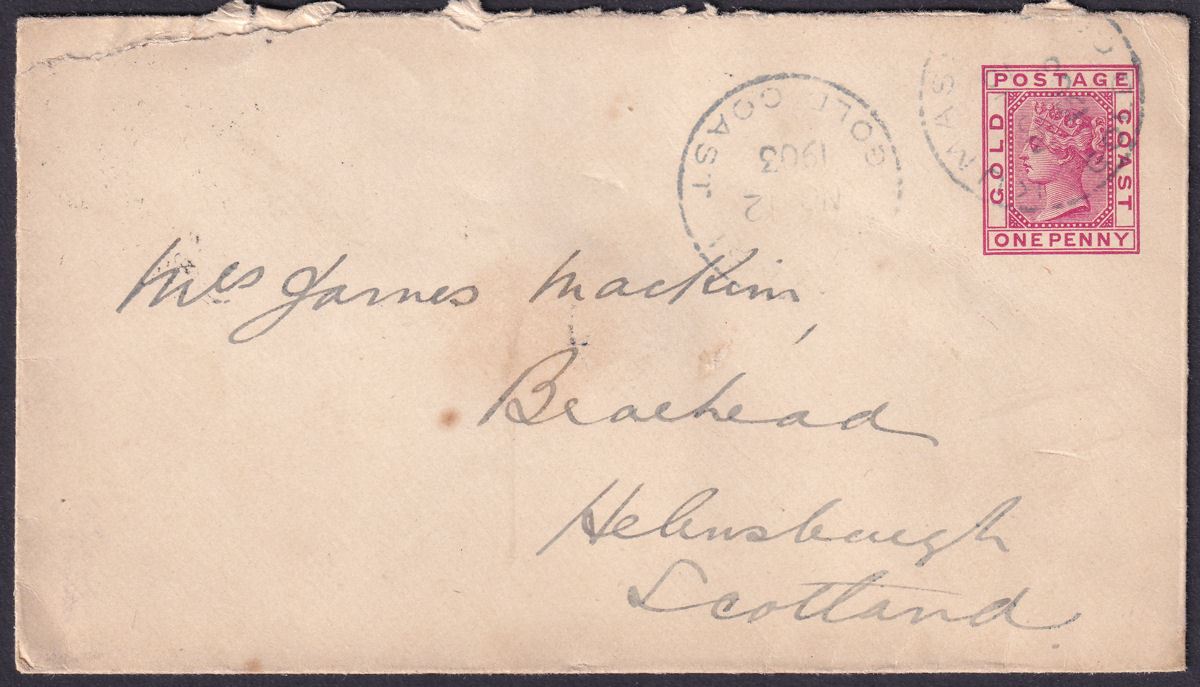 POSTAGE
GOLD
COAST
ONE PENNY
GOLD COAST
12
1903
Mrs James Mackim,
Braehead
Helensburgh
Scotland